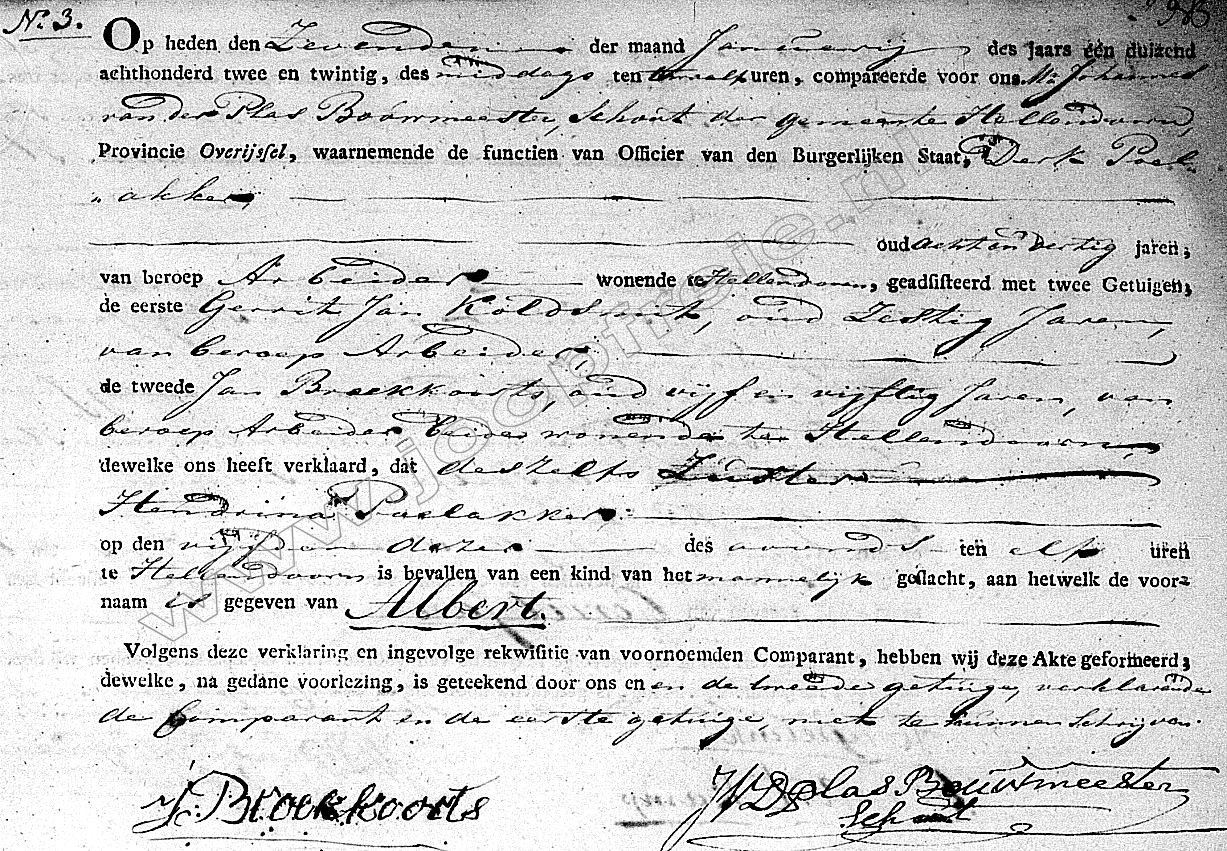 N.º 3.
Op heden den Zevenden der maand Januarij des jaars één duizend
achthonderd twee en twintig, des middags ten twaalf uren, compareerde voor ons Mr. Johannes
van der Plas Bouwmeester, Schout der gemeente Hellendoorn,
Provincie Overijssel, waarnemende de functien van Officier van den Burgerlijken Staat, Derk Poel
akker,
oud acht en dertig jaren,
van beroep Arbeider wonende te Hellendoorn, geadsisteerd met twee Getuigen,
de eerste Gerrit Jan Koldsmit, oud Zestig Jaren,
van beroep Arbeider,
de tweede Jan Broekkoorts, oud vijf en vijftig Jaren, van
beroep Arbeider beide wonende te Hellendoorn,
dewelke ons heeft verklaard, dat deszelfs Zuster
Hendrina Poelakker,
op den vijfden dezer des avonds ten elf uren
te Hellendoorn is bevallen van een kind van het mannelijk geslacht, aan hetwelk de voor-
naam is gegeven van Albert.
Volgens deze verklaring en ingevolge rekwisitie van voornoemden Comparant, hebben wij deze Akte geformeerd,
dewelke, na gedane voorlezing, is geteekend door ons en en de tweede getuige, verklarende
de Comparant en de eerste getuige niet te kunnen Schrijven.
J. Broekkoorts
JVD Plas Bouwmeester
Schout
www.joopfreie.nl